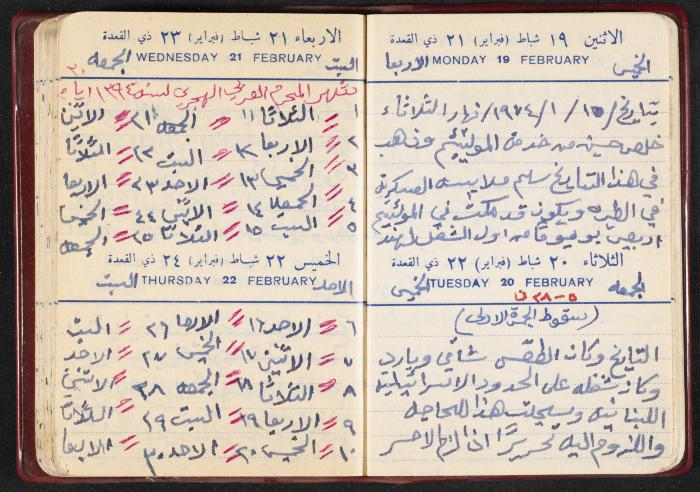 الاثنين ١٩ شباط (فبراير) ٢١ ذي القعدة
MONDAY 19 FEBRUARY
الخميس
الاربعا
بتاريخ ١٥ / ١ / ١٩٧٤ نهار الثلاثاء
خلص حسين من خدمة
في هذا التاريخ سلم ملابسه العسكرية
في
اول الشغل لهذا
الثلاثاء ٢٠ شباط (فبراير) ٢٢ ذي القعدة
TUESDAY 20 FEBRUARY
الجمعه
الخميس
(سقوط الجمرة الاولى)
التاريخ وكان الطقس شاتي وبارد
على الحدود الاسرائيلية
اللبنانيه وسجلت هذا للحاجه
واللزوم اليه تحريرًا اذا لزم الامر
الاربعاء ٢١ شباط (فبراير) ٢٣ ذي القعدة
WEDNESDAY 21 FEBRUARY
السبت
الجمعه
٣٠
شهر المحرم العربي الهجري لسنة ١٣٩٤ ايام
١ = الثلاثا ١١ = الجمعه ٢١ = الاثنين
٢ = الاربعا ١٢ = السبت ٢٢ = الثلاثا
٣ = الخميس ١٣ = الاحد ٢٣ = الاربعا
٤ = الجمعه ١٤ = الاثنين ٢٤ = الخميس
٥ = السبت ١٥ = الثلاثا ٢٥ = الجمعه
الخميس ٢٢ شباط (فبراير) ٢٤ ذي القعدة
THURSDAY 22 FEBRUARY
الاحد
السبت
٦ = الاحد ١٦ = الاربعا ٢٦ = السبت
٧ = الاثنين ١٧ = الخميس ٢٧ = الاحد
٨ = الثلاثا ١٨ = الجمعه ٢٨ = الاثنين
٩ = الاربعا ١٩ = السبت ٢٩ = الثلاثا
١٠ = الخميس ٢٠ = الاحد ٣٠ = الاربعا